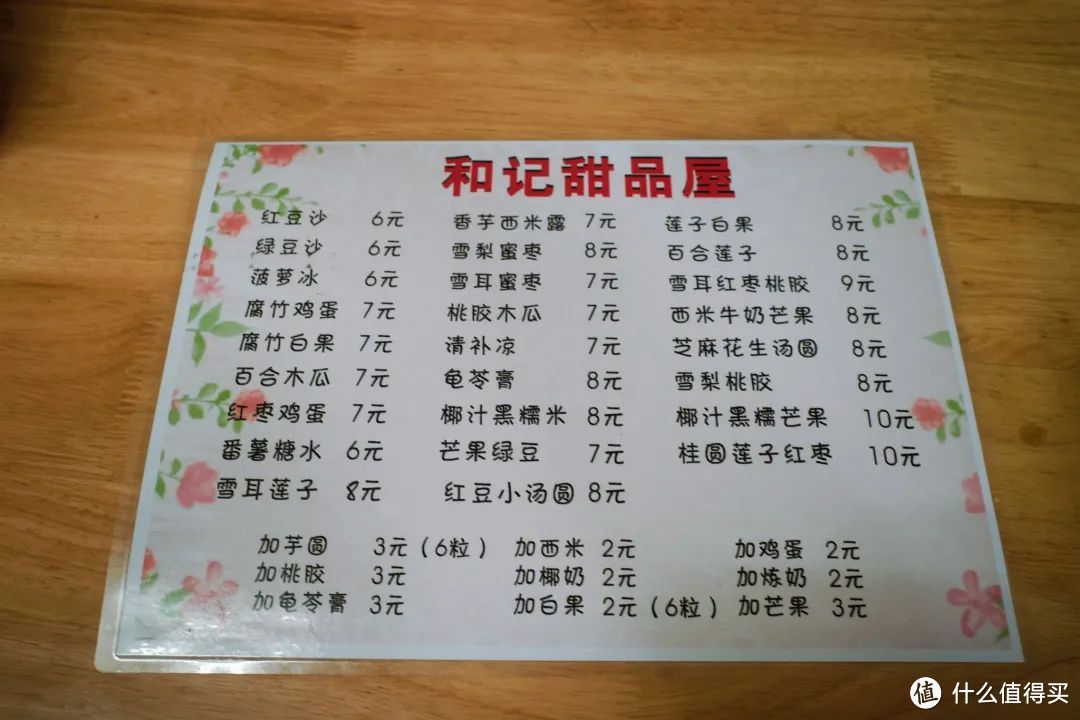 和记甜品屋
红豆沙 6元 香芋西米露 7元 莲子白果 8元
绿豆沙 6元 雪梨蜜枣 8元 百合莲子 8元
菠萝冰 6元 雪耳蜜枣 7元 雪耳红枣桃胶 9元
腐竹鸡蛋 7元 桃胶木瓜 7元 西米牛奶芒果 8元
腐竹白果 7元 请补凉 7元 芝麻花生汤圆 8元
百合木瓜 7元 龟苓膏 8元 雪梨桃胶 8元
红枣鸡蛋 7元 椰汁黑糯米 8元 椰汁黑糯芒果 10元
番薯糖水 6元 芒果绿豆 7元 桂圆莲子红枣 10元
雪耳莲子 8元 红豆小汤圆 8元
加芋圆 3元(6粒) 加西米 2元 加鸡蛋 2元
加桃胶 3元 加椰奶 2元 加炼奶 2元
加龟苓膏 3元 加白果 2元(6粒) 加芒果 3元
值 什么值得买